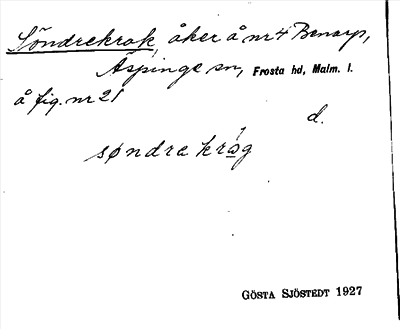 Söndrekrok, åker å nr 4 Benarp,
Äspinge sn, Frosta hd, Malm. l.
å fig. nr 21
d.
søndra kråg
GÖSTA SJÖSTEDT 1927